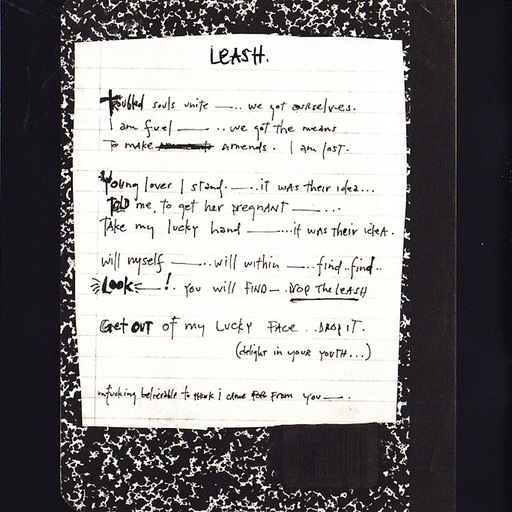 LEASH.
troubled souls unite —.. we got ourselves.
I am fuel —.. we got the means
to make amends. I am lost.
Young lover I stand. —..it was their idea...
TOLD me to get her pregnant —...
Take my lucky hand —...it was their idea.
will myself —...will within —...find..find..
LOOK —! you will FIND—. DROP The LEASH
Get OUT of my Lucky FACE... DROP IT.
(delight in your youth...)
unfucking believable to think I came from you —.